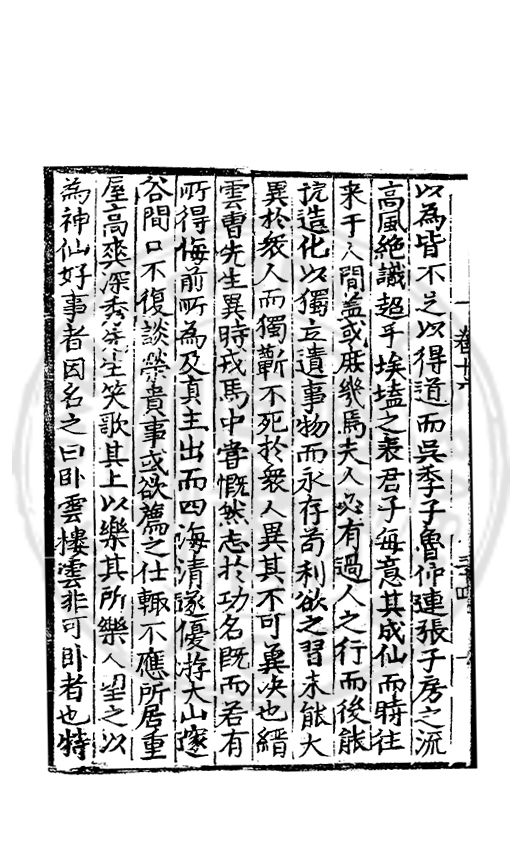 以為皆不足以得道而吳季子魯仲連張子房之流
高風絶識超乎埃𡏖之表君子每意其成仙而時往
来于人間盖或庶幾焉夫人必有過人之行而後能
抗造化以獨立遺事物而永存苟利欲之習未能大
異於衆人而獨蘄不死於衆人異其不可兾决也縉
雲曹先生異時戎馬中嘗慨然志於功名既而若有
所得悔前所為及真主出而四海清遂優游大山邃
谷間口不復談榮貴事或欲薦之仕輙不應所居重
屋高爽深秀先生笑歌其上以樂其所樂人望之以
為神仙好事者因名之曰卧雲樓雲非可卧者也特
卷十六
三十四